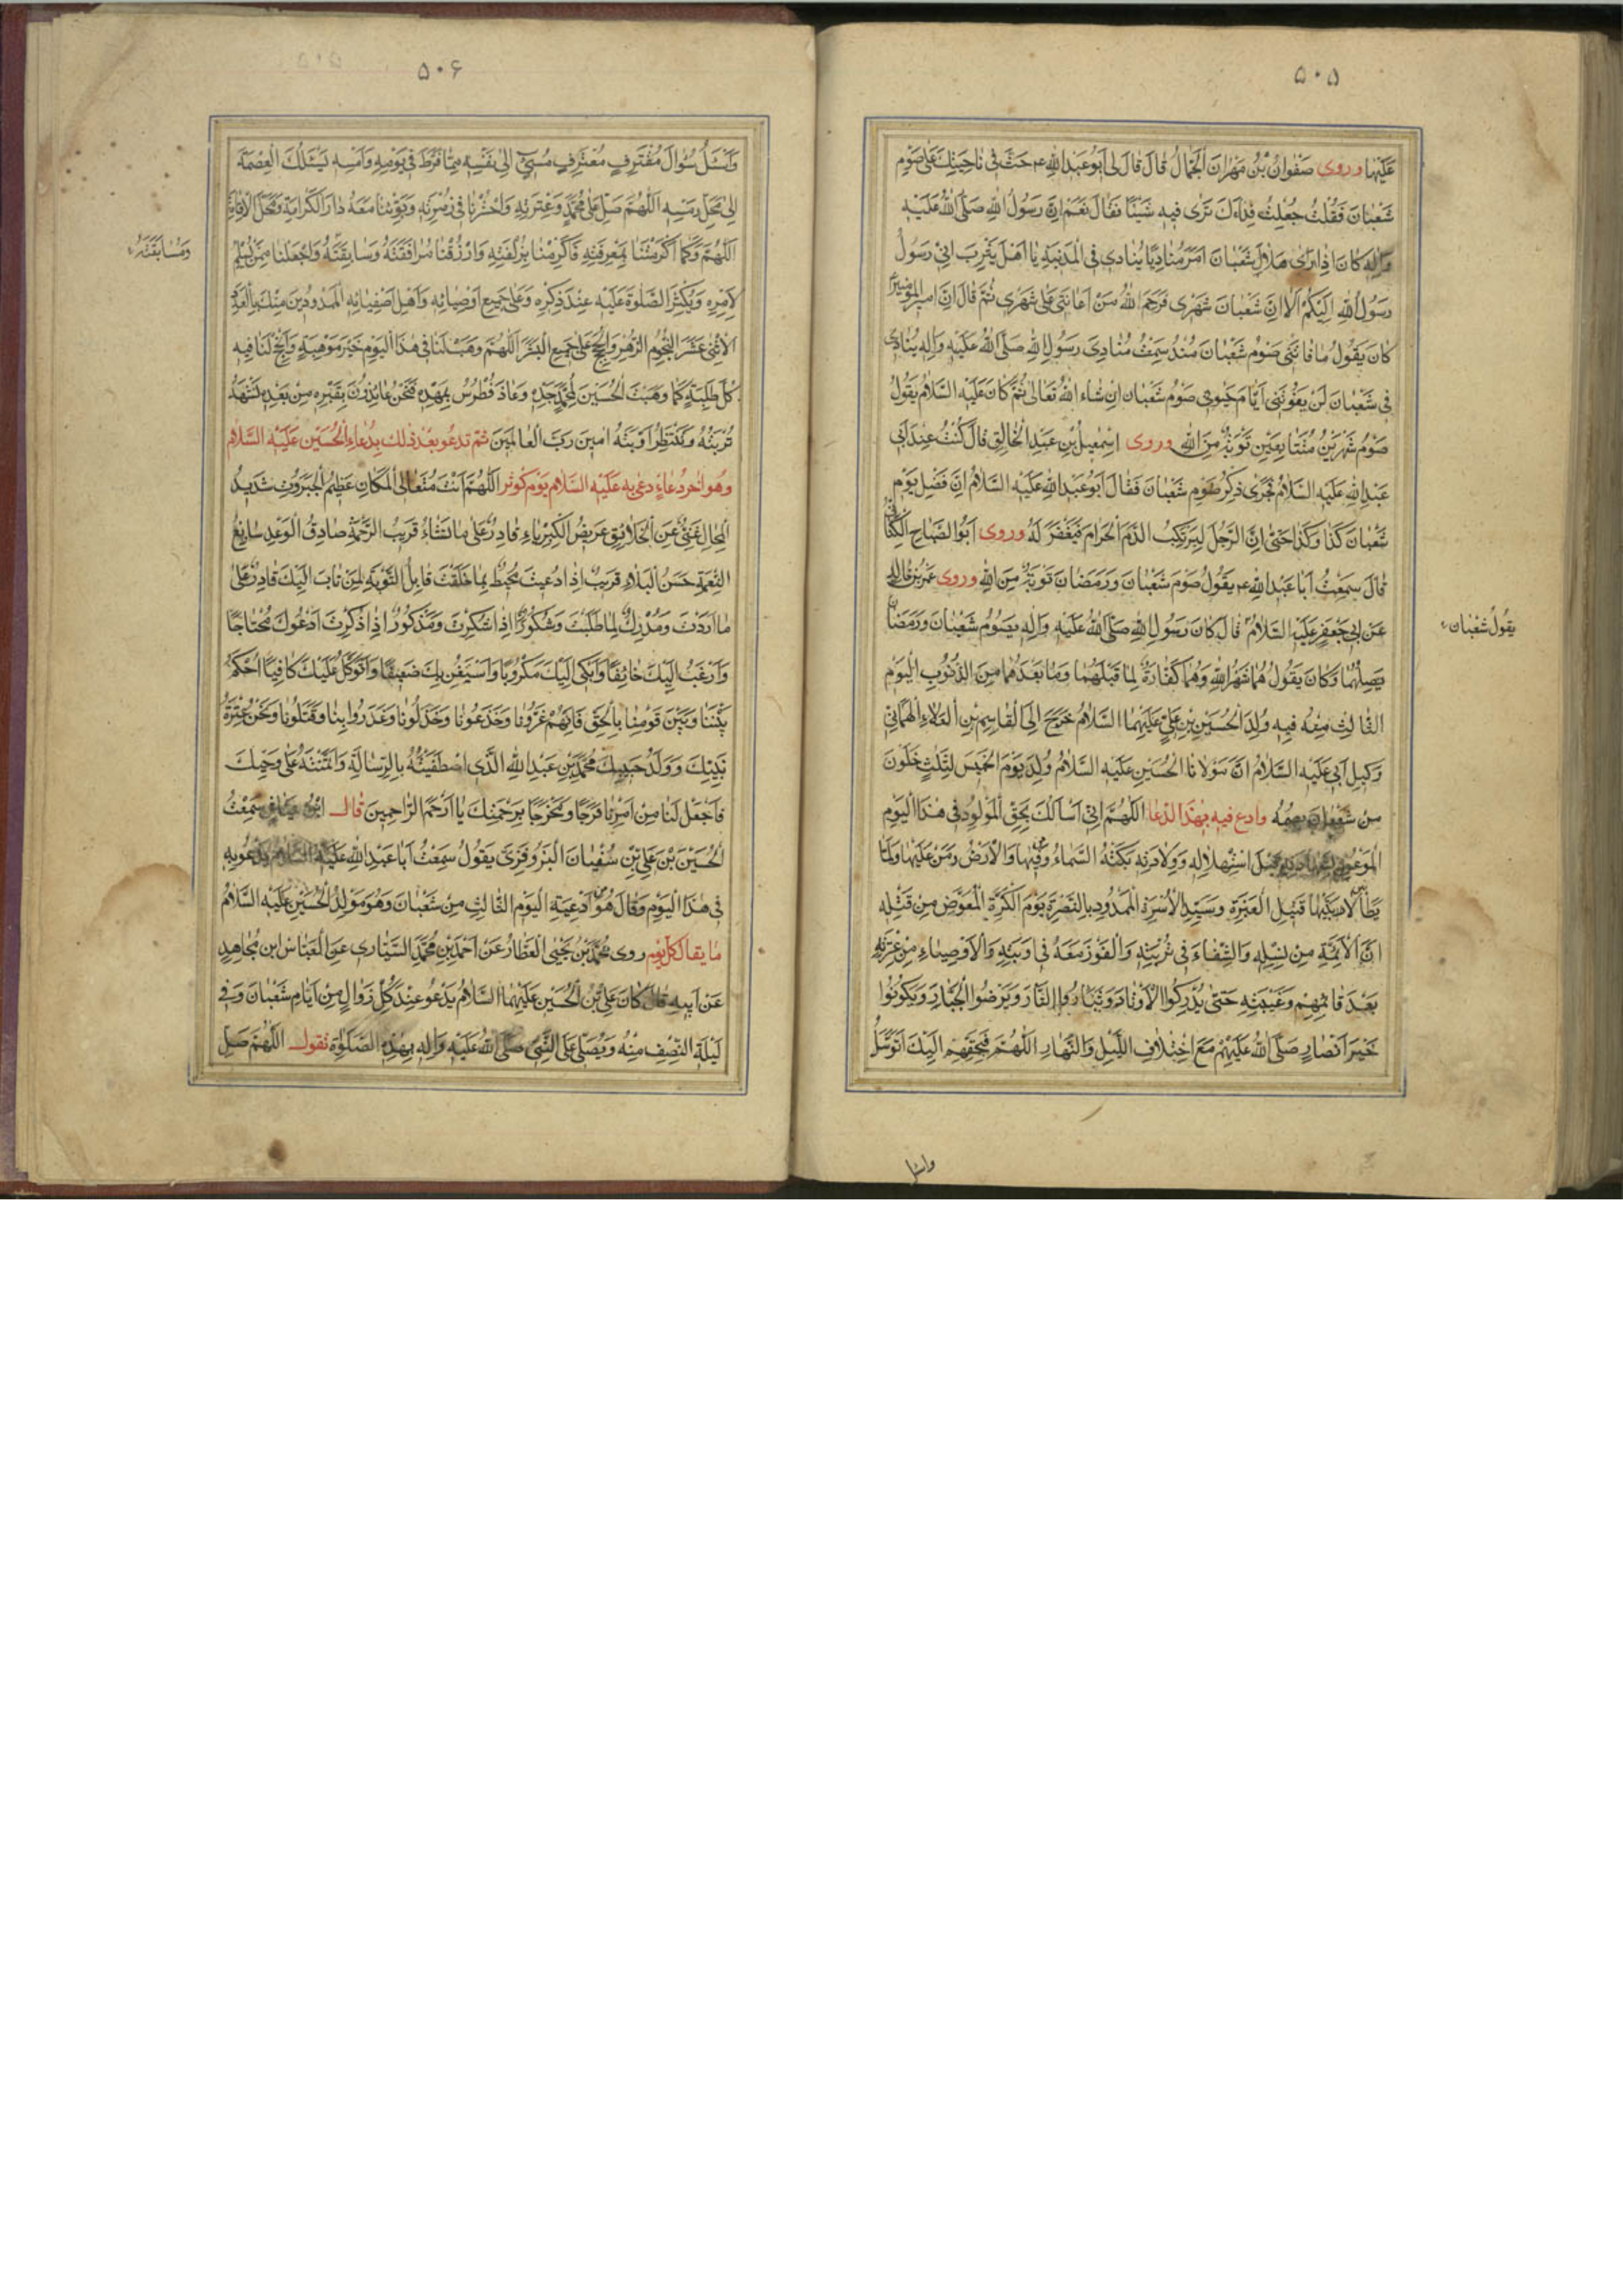 ۵۰۵
عَلَيْها وروى صَفْوانُ بْنُ مَهْرانَ الْجَمّالُ قالَ قالَ لى اَبُو عَبْدِ اللهِ ع حَثَّ فى ناحِيَتِكَ عَلى صَوْمِ
شَعْبانَ فَقُلْتُ جُعِلْتُ فِداءَكَ تَرى فيهِ شَيْئًا فَقالَ نَعَمْ اِنَّ رَسُولَ اللهِ صَلَّى اللهُ عَلَيْهِ
وَالِهِ كانَ اِذا رَاى هِلالَ شَعْبانَ اَمَرَ مُنادِيًا يُنادى فِى الْمَدينَةِ يا اَهْلَ يَثْرِبَ اِنّى رَسُولُ
رَسُولِ اللهِ اِلَيْكُمْ اَلا اِنَّ شَعْبانَ شَهْرى فَرَحِمَ اللهُ مَنْ اَعانَنى عَلى شَهْرى ثُمَّ قالَ اِنَّ اميرَ الْمُؤْمِنينَ
كانَ يَقُولُ ما فاتَنى صَوْمُ شَعْبانَ مُنْذُ سَمِعْتُ مُنادِىَ رَسُولِ اللهِ صَلَّى اللهُ عَلَيْهِ وَالِهِ يُنادى
فى شَعْبانَ لَنْ يَفُوتَنى اَيّامَ حَيوتى صَوْمُ شَعْبانَ اِنْ شاءَ اللهُ تَعالى ثُمَّ كانَ عَلَيْهِ السَّلامُ يَقُولُ
صَوْمُ شَهْرَيْنِ مُتَتابِعَيْنِ تَوْبَةٌ مِنَ اللهِ وروى اِسْمعيلُ بْنُ عَبْدِ الْخالِقِ قالَ كُنْتُ عِنْدَ اَبى
عَبْدِ اللهِ عَلَيْهِ السَّلامُ فَجَرى ذِكْرُ صَوْمِ شَعْبانَ فَقالَ اَبُو عَبْدِ اللهِ عَلَيْهِ السَّلامُ اِنَّ فَضْلَ يَوْمِ
شَعْبانَ كَذا وَكَذا حَتّى اِنَّ الرَّجُلَ لَيَرْتَكِبُ الدَّمَ الْحَرامَ فَيُغْفَرُ لَهُ وروى اَبُو الصَّباحِ الْكِنانِىُّ
قالَ سَمِعْتُ اَبا عَبْدِ اللهِ ع يَقُولُ صَوْمُ شَعْبانَ وَرَمَضانَ تَوْبَةٌ مِنَ اللهِ وروى عَمْرُو بْنُ خالِدٍ
عَنْ اَبى جَعْفَرٍ عَلَيْهِ السَّلامُ قالَ كانَ رَسُولُ اللهِ صَلَّى اللهُ عَلَيْهِ وَالِهِ يَصُومُ شَعْبانَ وَرَمَضانَ
يَقُولُ شَعْبانَ
يَصِلُهُما وَكانَ يَقُولُ هُما شَهْرا اللهِ وَهُما كَفّارَةٌ لِما قَبْلَهُما وَما بَعْدَهُما مِنَ الذُّنُوبِ الْيَوْمُ
الثّالِثُ مِنْهُ فيهِ وُلِدَ الْحُسَيْنُ بْنُ عَلِىٍّ عَلَيْهِمَا السَّلامُ خَرَجَ اِلَى الْقاسِمِ بْنِ الْعَلاءِ الْهَمْدانِىِّ
وَكيلِ اَبى عَلَيْهِ السَّلامُ اَنَّ مَوْلانَا الْحُسَيْنَ عَلَيْهِ السَّلامُ وُلِدَ يَوْمَ الْخَميسِ لِثَلثٍ خَلَوْنَ
مِنْ شَعْبانَ فَصُمْهُ وادع فيه بهذا الدّعا اَللّهُمَّ اِنّى اَسْاَلُكَ بِحَقِّ الْمَوْلُودِ فى هذَا الْيَوْمِ
الْمَوْعُودِ بِشَهادَتِهِ قَبْلَ اسْتِهْلالِهِ وَوِلادَتِهِ بَكَتْهُ السَّماءُ وَمَنْ فيها وَالْاَرْضُ وَمَنْ عَلَيْها وَلَمّا
يَطَأْ لابَتَيْها قَتيلِ الْعَبْرَةِ وَسَيِّدِ الْاُسْرَةِ الْمَمْدُودِ بِالنُّصْرَةِ يَوْمَ الْكَرَّةِ الْمُعَوَّضِ مِنْ قَتْلِهِ
اَنَّ الْاَئِمَّةَ مِنْ نَسْلِهِ وَالشِّفاءَ فى تُرْبَتِهِ وَالْفَوْزَ مَعَهُ فى اَوْبَتِهِ وَالْاَوْصِياءِ مِنْ عِتْرَتِهِ
بَعْدَ قائِمِهِمْ وَغَيْبَتِهِ حَتّى يُدْرِكُوا الْاَوْتارَ وَيَثْاَرُوا الثّارَ وَيُرْضُوا الْجَبّارَ وَيَكُونُوا
خَيْرَ اَنْصارٍ صَلَّى اللهُ عَلَيْهِمْ مَعَ اخْتِلافِ اللَّيْلِ وَالنَّهارِ اَللّهُمَّ فَبِحَقِّهِمْ اِلَيْكَ اَتَوَسَّلُ
۵۰۶
وَاَسْئَلُ سُؤالَ مُقْتَرِفٍ مُعْتَرِفٍ مُسيئٍ اِلى نَفْسِهِ مِمّا فَرَّطَ فى يَوْمِهِ وَاَمْسِهِ يَسْئَلُكَ الْعِصْمَةَ
اِلى مَحَلِّ رَمْسِهِ اَللّهُمَّ صَلِّ عَلى مُحَمَّدٍ وَعِتْرَتِهِ وَاحْشُرْنا فى زُمْرَتِهِ وَبَوِّئْنا مَعَهُ دارَ الْكَرامَةِ وَمَحَلَّ الْاِقامَةِ
اَللّهُمَّ وَكَما اَكْرَمْتَنا بِمَعْرِفَتِهِ فَاَكْرِمْنا بِزُلْفَتِهِ وَارْزُقْنا مُرافَقَتَهُ وَسابِقَتَهُ وَاجْعَلْنا مِمَّنْ يُسَلِّمُ
وَمُسابَقَتَهُ
لِاَمْرِهِ وَيُكْثِرُ الصَّلوةَ عَلَيْهِ عِنْدَ ذِكْرِهِ وَعَلى جَميعِ اَوْصِيائِهِ وَاَهْلِ اَصْفِيائِهِ الْمَمْدُودينَ مِنْكَ بِالْعَدَدِ
الْاِثْنَىْ عَشَرَ النُّجُومِ الزُّهَرِ وَالْحُجَجِ عَلى جَميعِ الْبَشَرِ اَللّهُمَّ وَهَبْ لَنا فى هذَا الْيَوْمِ خَيْرَ مَوْهِبَةٍ وَاَنْجِحْ لَنا فيهِ
كُلَّ طَلِبَةٍ كَما وَهَبْتَ الْحُسَيْنَ لِمُحَمَّدٍ جَدِّهِ وَعاذَ فُطْرُسُ بِمَهْدِهِ فَنَحْنُ عائِذُونَ بِقَبْرِهِ مِنْ بَعْدِهِ نَشْهَدُ
تُرْبَتَهُ وَنَنْتَظِرُ اَوْبَتَهُ امينَ رَبَّ الْعالَمينَ ثمّ تدعو بعد ذلك بدعاء الحسين عليه السّلام
وهو اخر دعاء دعى به عليه السّلام يوم كوثر اَللّهُمَّ اَنْتَ مُتَعالِى الْمَكانِ عَظيمُ الْجَبَرُوتِ شَديدُ
الْمِحالِ غَنِىٌّ عَنِ الْخَلائِقِ عَريضُ الْكِبْرِياءِ قادِرٌ عَلى ما تَشاءُ قَريبُ الرَّحْمَةِ صادِقُ الْوَعْدِ سابِغُ
النِّعْمَةِ حَسَنُ الْبَلاءِ قَريبٌ اِذا دُعيتَ مُحيطٌ بِما خَلَقْتَ قابِلُ التَّوْبَةِ لِمَنْ تابَ اِلَيْكَ قادِرٌ عَلى
ما اَرَدْتَ وَمُدْرِكٌ ما طَلَبْتَ وَشَكُورٌ اِذا شُكِرْتَ وَمَذْكُورٌ اِذا ذُكِرْتَ اَدْعُوكَ مُحْتاجًا
وَاَرْغَبُ اِلَيْكَ خائِفًا وَاَبْكى اِلَيْكَ مَكْرُوبًا وَاَسْتَعينُ بِكَ ضَعيفًا وَاَتَوَكَّلُ عَلَيْكَ كافِيًا اُحْكُمْ
بَيْنَنا وَبَيْنَ قَوْمِنا بِالْحَقِّ فَاِنَّهُمْ غَرُّونا وَخَدَعُونا وَخَذَلُونا وَغَدَرُوا بِنا وَقَتَلُونا وَنَحْنُ عِتْرَةُ
نَبِيِّكَ وَوَلَدُ حَبيبِكَ مُحَمَّدِ بْنِ عَبْدِ اللهِ الَّذِى اصْطَفَيْتَهُ بِالرِّسالَةِ وَائْتَمَنْتَهُ عَلى وَحْيِكَ
فَاجْعَلْ لَنا مِنْ اَمْرِنا فَرَجًا وَمَخْرَجًا بِرَحْمَتِكَ يا اَرْحَمَ الرّاحِمينَ قال ابْنُ عَيّاشٍ سَمِعْتُ
الْحُسَيْنَ بْنَ عَلِىِّ بْنِ سُفْيانَ الْبَزَوْفَرِىَّ يَقُولُ سَمِعْتُ اَبا عَبْدِ اللهِ عَلَيْهِ السَّلامُ يَدْعُو بِهِ
فى هذَا الْيَوْمِ وَقالَ هُوَ مِنْ اَدْعِيَةِ الْيَوْمِ الثّالِثِ مِنْ شَعْبانَ وَهُوَ مَوْلِدُ الْحُسَيْنِ عَلَيْهِ السَّلامُ
ما يقال كلّ يوم روى مُحَمَّدُ بْنُ يَحْيَى الْعَطّارُ عَنْ اَحْمَدَ بْنِ مُحَمَّدٍ السَّيّارى عَنِ الْعَبّاسِ ابْنِ مُجاهِدٍ
عَنْ اَبيهِ قالَ كانَ عَلِىُّ بْنُ الْحُسَيْنِ عَلَيْهِمَا السَّلامُ يَدْعُو عِنْدَ كُلِّ زَوالٍ مِنْ اَيّامِ شَعْبانَ وَفى
لَيْلَةِ النِّصْفِ مِنْهُ وَيُصَلّى عَلَى النَّبِىِّ صَلَّى اللهُ عَلَيْهِ وَالِهِ بِهذِهِ الصَّلَواةِ تقول اَللّهُمَّ صَلِّ